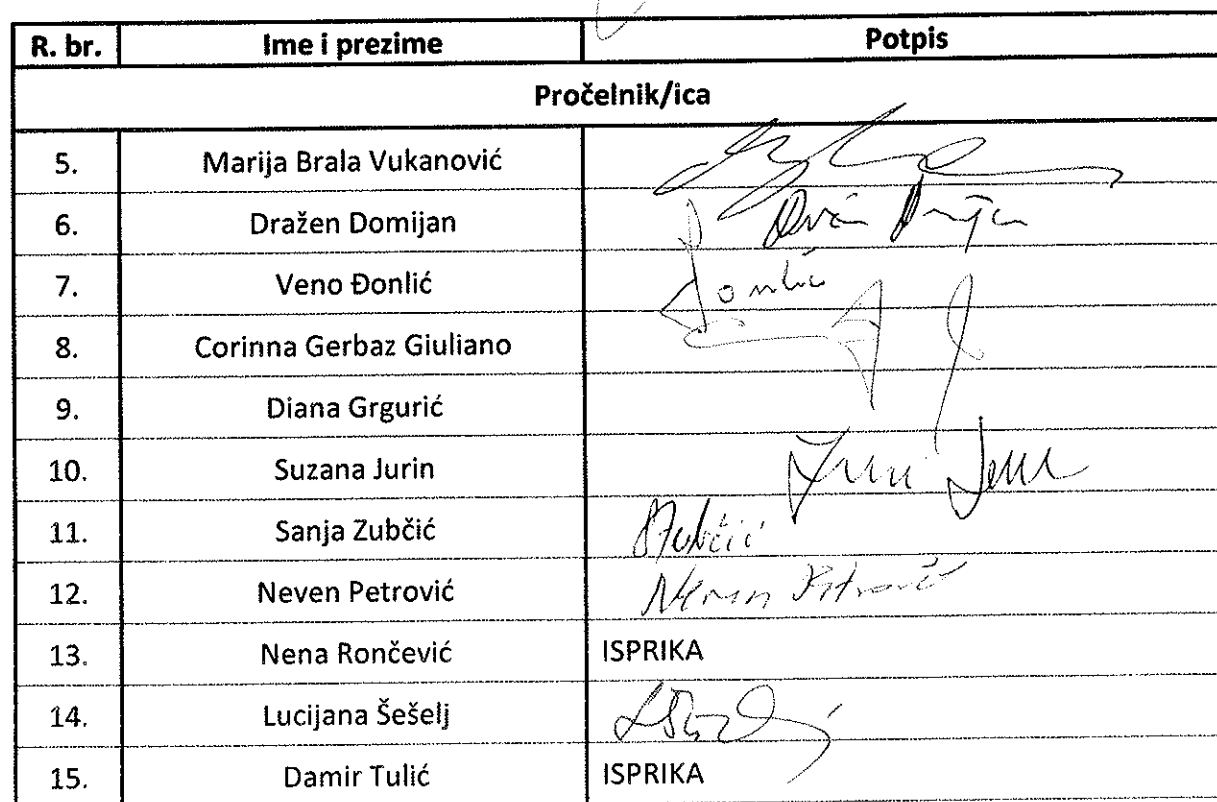 R. br. Ime i prezime Potpis
Pročelnik/ica
5. Marija Brala Vukanović
6. Dražen Domijan
7. Veno Đonlić
8. Corinna Gerbaz Giuliano
9. Diana Grgurić
10. Suzana Jurin
11. Sanja Zubčić
12. Neven Petrović Neven Petrović
13. Nena Rončević ISPRIKA
14. Lucijana Šešelj
15. Damir Tulić ISPRIKA